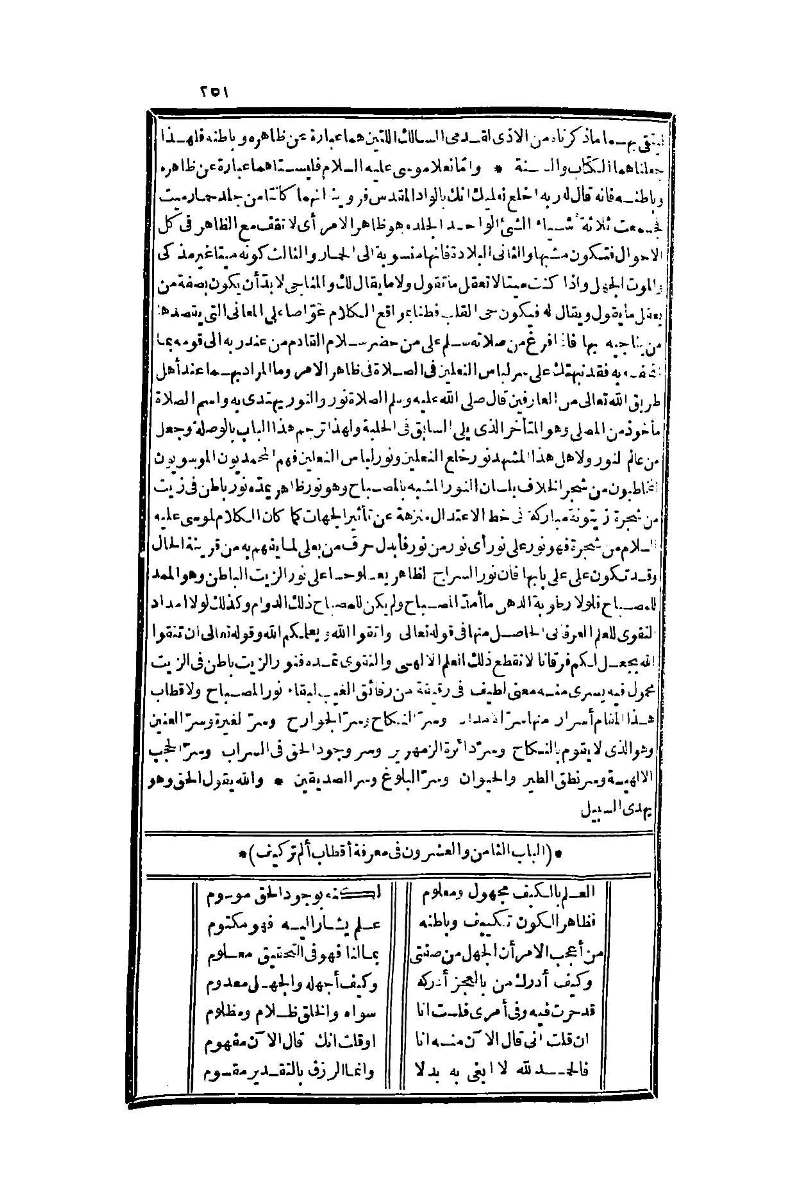 ٢٥١
ليتقى بهما ما ذكرناه من الاذى لقدمى السالك اللتين هما عبارة عن ظاهره وباطنه فلهذا
جعلناهما الكتاب والسنة * وأما نعلا موسى عليه السلام فليستا هما عبارة عن ظاهره
وباطنه فانه قال له ربه اخلع نعليك انك بالواد المقدس فروينا انهما كانتا من جلد حمار ميت
فجمعت ثلاثة أشياء الشئ الواحد الجلد وهو ظاهر الامر أى لا تقف مع الظاهر فى كل
الاحوال والثانى البلادة فانها منسوبة الى الحمار والثالث كونه ميتا غير مذكى
والموت الجهل واذا كنت ميتا لا تعقل ما تقول ولا ما يقال لك والمناجى لا بد أن يكون بصفة من
يعقل ما يقول ويقال له فيكون حى القلب فطنا بمواقع الكلام غواصا على المعانى التى يقصدها
من يناجيه بها فاذا فرغ من صلاته سلم على من حضر سلام القادم من عند ربه الى قومه بما
اتحفه به فقد نبهتك على سر لباس النعلين فى الصلاة فى ظاهر الامر وما المراد بهما عند أهل
طريق الله تعالى من العارفين قال صلى الله عليه وسلم الصلاة نور والنور يهتدى به واسم الصلاة
مأخوذ من المصلى وهو المتأخر الذى يلى السابق فى الحلبة ولهذا ترجم هذا الباب بالوصلة وجعل
من عالم النور ولاهل هذا المشهد نور خلع النعلين ونور لباس النعلين فهم المحمديون الموسويون
المخاطبون من شجر الخلاف بلسان النور المشبه بالمصباح وهو نور ظاهر يمده نور باطن فى زيت
من شجرة زيتونة مباركة فى خط الاعتدال منزهة عن تأثير الجهات كما كان الكلام لموسى عليه
السلام من شجرة فهو نور على نور أى نور من نور فأبدل حرف من بعلى لما يفهم به من قرينة الحال
وقد تكون على على بابها فان نور السراج الظاهر يعلو حسا على نور الزيت الباطن وهو الممد
للمصباح فلولا رطوبة الدهن ما أمد المصباح ولم يكن للمصباح ذلك الدوام وكذلك لولا امداد
التقوى للعلم العرفانى الحاصل منها فى قوله تعالى واتقوا الله ويعلمكم الله وقوله تعالى ان تتقوا
الله يجعل لكم فرقانا لانقطع ذلك العلم الالهى والتقوى تمده فنور الزيت باطن فى الزيت
محمول فيه يسرى منه معنى لطيف فى رقيقة من رقائق الغيب لبقاء نور المصباح ولاقطاب
هذا المقام أسرار منها سر الامداد وسر النكاح وسر الجوارح وسر الغيرة وسر العنين
وهو الذى لا يقوم بالنكاح وسر دائرة الزمهرير وسر وجود الحق فى السراب وسر الحجب
الالهية وسر نطق الطير والحيوان وسر البلوغ وسر الصديقين * والله يقول الحق وهو
يهدى السبيل
*(الباب الثامن والعشرون فى معرفة أقطاب ألم تركيف)*
العلم بالكيف مجهول ومعلوم لكنه بوجود الحق موسوم
فظاهر الكون تكييف وباطنه علم يشار اليه فهو مكتوم
من أعجب الامر أن الجهل من صفتى بما لنا فهو فى التحقيق معلوم
وكيف أدرك من بالعجز أدركه وكيف أجهله والجهل معدوم
قد حرت فيه وفى أمرى فلست انا سواه والخلق ظلام ومظلوم
ان قلت انى قال الآن منه انا اوقلت انك قال الآن مفهوم
فالحمد لله لا ابغى به بدلا وانما الرزق بالتقدير مقسوم